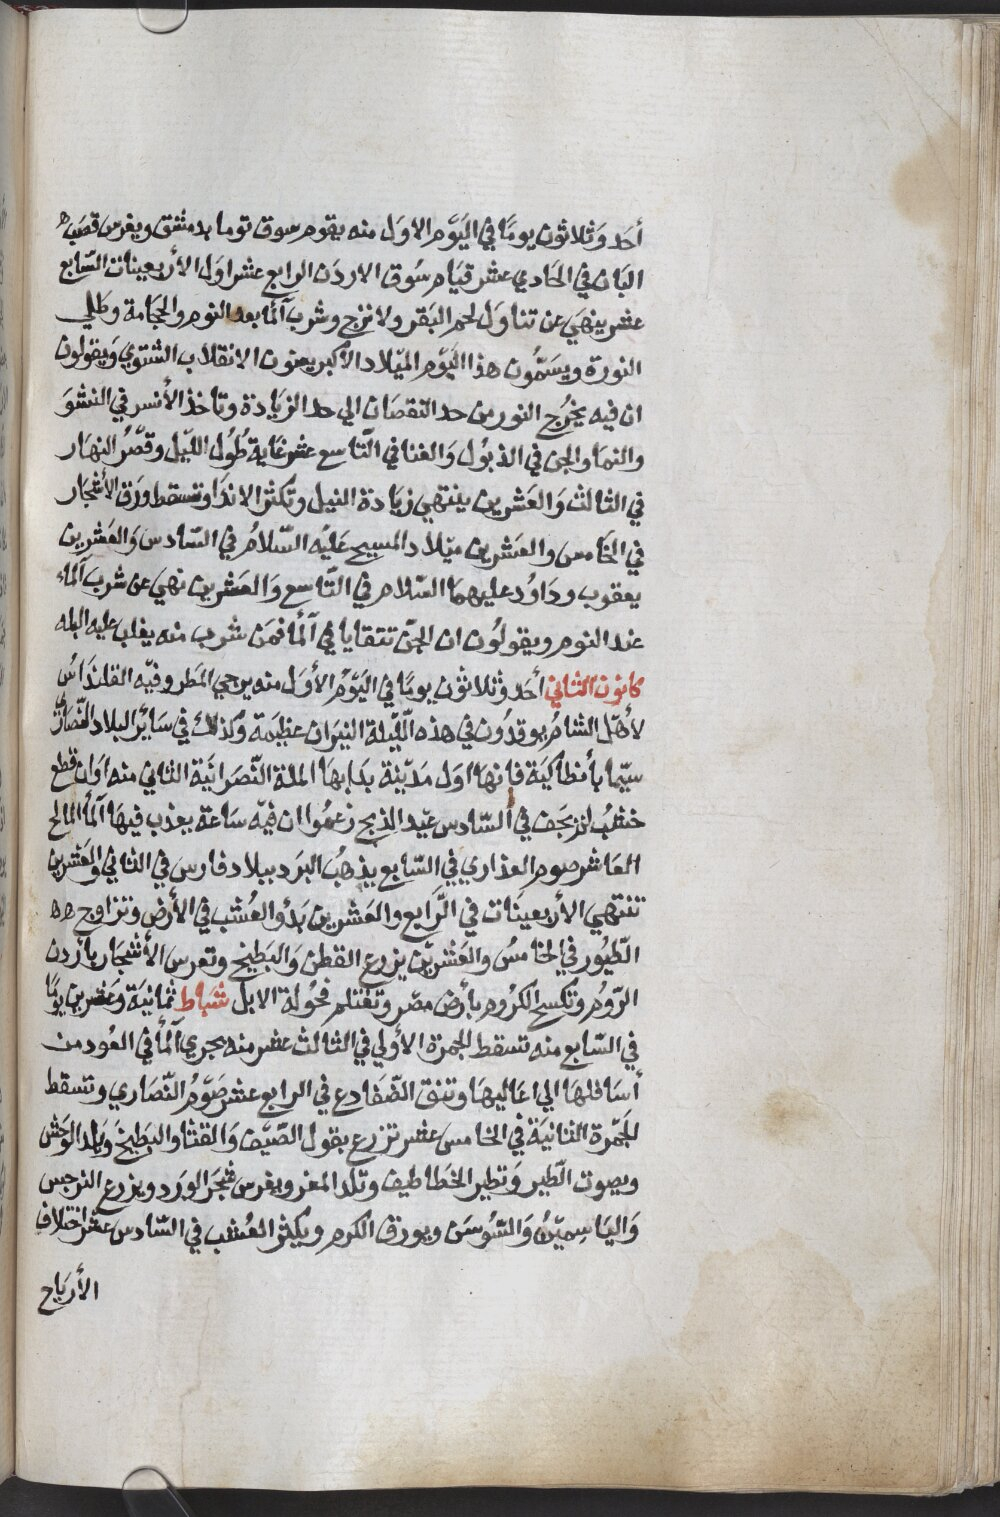 أحَد وَثلاثون يومًا في اليَوَم الاوَل منه يقوم سوق توما بدمشق ويغرس قصَب
البَان في الحَادي عشر قيَام سُوق الاردَن الرابع عشر اوَل الأربعينات السّابع
عشر ينهَي عن تناوَل لحم البَقر ولا نزج وشرب ألمَا بعد النوم والحجامة وطلي
النورة ويسَمُّون هذا اليَوَم الميّلاد الأكبر يعنون الانقلاب الشتوي وَيقولون
ان فيه يخرُج النور من حد النّقصَان الي حد الزيَادة وتاخذ الأنس في النشوَ
والنمَا والجن في الذبُول وَالفنا في التّاسع عشر غاية طُول الليّل وقصّرُ النهَار
في الثالث وَالعَشرين ينتهي زيَادة النيل وتكثر الاندَا وتسقط ورَق الأشجَار
في الخَامس والعَشرين ميلاد المسيح عَليَه السّلامُ في السّادس وَالعَشرين
يعقوب ودَاوُد عليهما السّلام في التّاسع وَالعَشرين نهي عن شرب ألمَاء
عند النوم ويقولُون ان الجنّ تتقايا في ألمَا فمَن شرب منه يغلب عليه البله
كانون الثاني أحَد وَثلاثون يومًا في اليَوَم الأوَل منه يرجي المَطر وفيّه القلندَاسُ
لأهّل الشامُ يوقدُون في هذه اللّيّلة النيَران عظيَمة وكذلك في سَايَر البلاد النّصَارَي
سيّما بأنطاكيَة فانها اوَل مَديّنة بدَا بها الملة النّصرَانيَة الثاني منه اوَان قطع
خشبُ لزيجَف في ألسّادس عيّد الذبح زعمُوا ان فيّه سَاعة يعذب فيهَا ألمَا المالح
العَاشر صوم العذاري في السّابع يذهبُ البرَد ببلاد فارس في الثاني وَالعَشرين
تنتهي الأربعينَات في الَّرابع والعَشرين بَدؤ العُشب في الأرض وتزاوج
الطّيُور في الخَامسُ والعَشريّن يزرع القطن وَالبَطيخ وتغرس الأشجَار بأردن
الرّومُ وتكسح الكرُوم بأرض مصر وتغتلم فحُولة الابل شبَاط ثمَانيَة وعَشرين يومًا
في السّابع منه تسقط الجمرَة الأولي في الثالث عشر منه يجري ألمَأ في العُود من
أسَافلهَا الي اعَاليهَا وتنق الضّفادع في الرابع عشر صَوّمُ النّصَاري وتسقط
الجَمّرة الثانيَة في الخَامس عشر تزرع بقول الصَّيَف وَالقثا والبَطيخَ ويلد الوَحَش
ويصوت الطّير وَتطير الخطَاطيف وتلد المعز ويغرس شجَر الورَد ويزرع النرجس
وَاليَاسِميّن وَالسّوسَن ويورق الكرم ويكثر العُشب في السّادس عشر اختلاف
الأريَاح